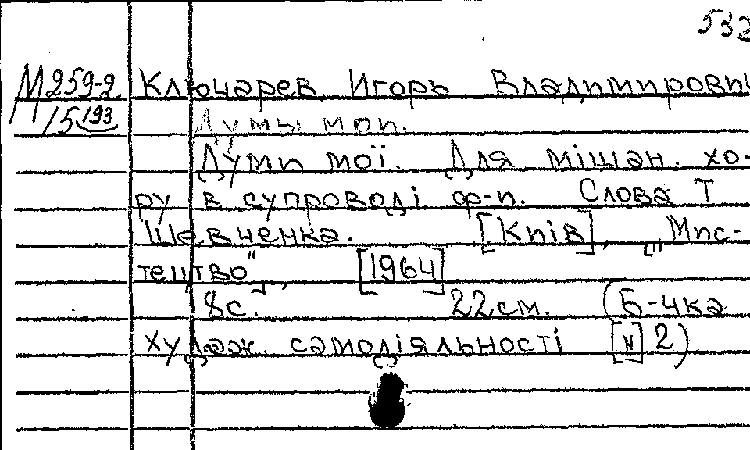 532
М 259-2 Ключарев Игорь Владимирови
15 193 Думы мои.
Думи мої. Для мішан. хо-
ру в супроводі ф-п. Слова Т
Шевченка. [Київ], „Мис-
тецтво", [1964]
8с. 22 см. (Б-чка
худож. самодіяльності [№] 2)